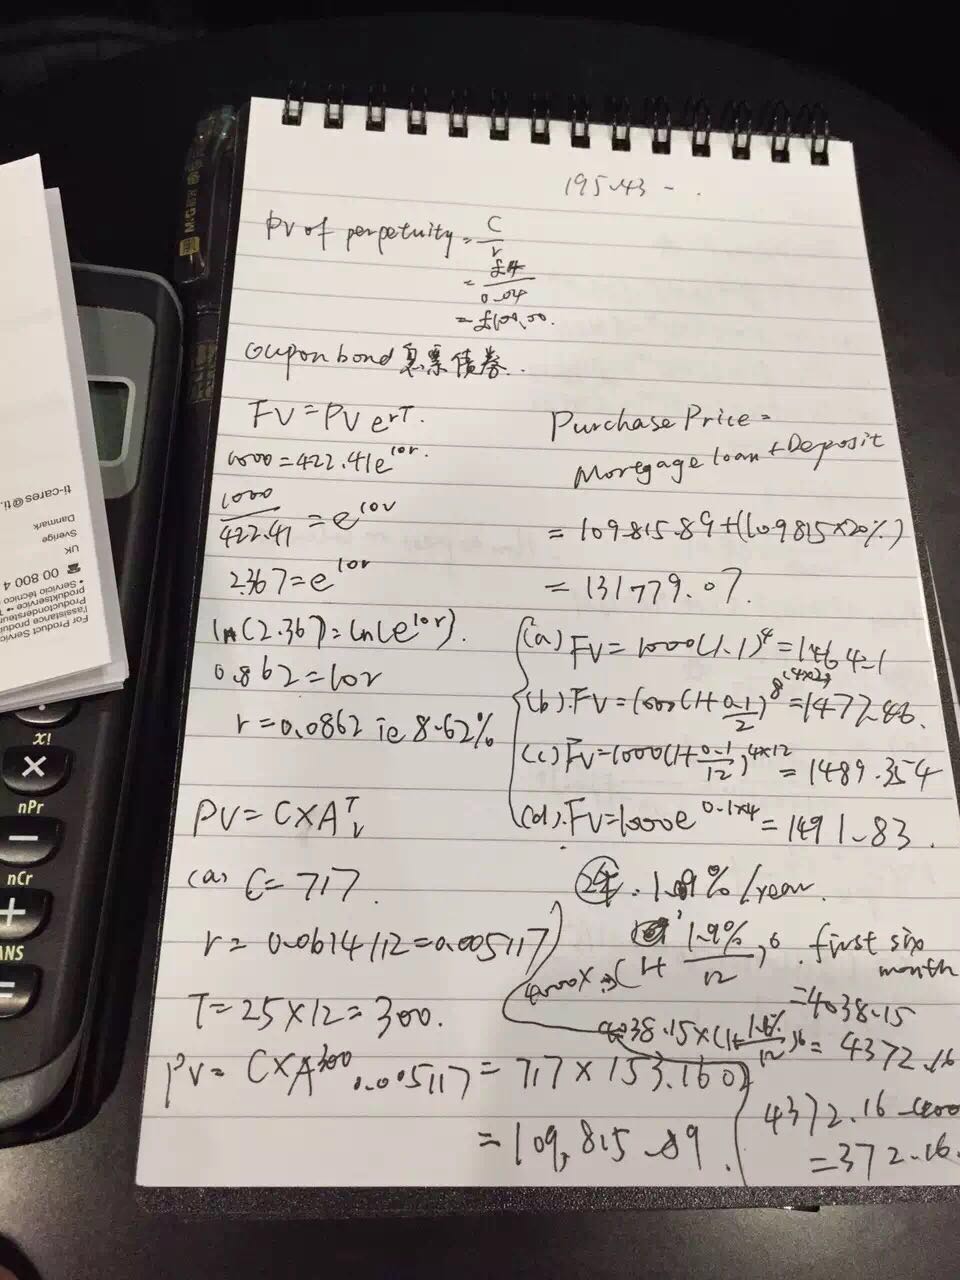 195.43 - .
PV of perpetuity = C/r
= £4/0.04
= £100.00.
Coupon bond 息票債券..
FV = PV e^rT.
1000 = 422.41e^10r.
1000/422.41 = e^10r
2.367 = e^10r
ln(2.367) = ln(e^10r).
0.862 = 10r
r = 0.0862 ie 8.62%
PV = C×A^T_r
(a) C = 717
r = 0.0614/12 = 0.005117
T = 25×12 = 300.
PV = C×A^300 0.005117 = 717 × 153.160
= 109,815.89.
Purchase Price =
Mortgage loan + Deposit
= 109815.89 + (109815×20%)
= 131779.07.
(a) FV = 1000(1.1)^4 = 1464.1
(b). FV = 1000(1+0.1/2)^8 (4×2) = 1477.46.
(c) FV = 1000(1+0.1/12)^4×12 = 1489.354
(d). FV = 1000e^0.1×4 = 1491.83.
%/year
4000× (1+ 1.9%/12)^6. first six
month
= 4038.15
4038.15×(1+ /12)^6 = 4372.16
4372.16-4000
= 372.16.
ti-cares@ti.
Danmark
Sverige
UK
00 800 4
• Servicio técnico
Produktservice
Productondersteun
l'assistance produi
For Product Servic
M&G
x!
×
nPr
−
nCr
+
ANS
=